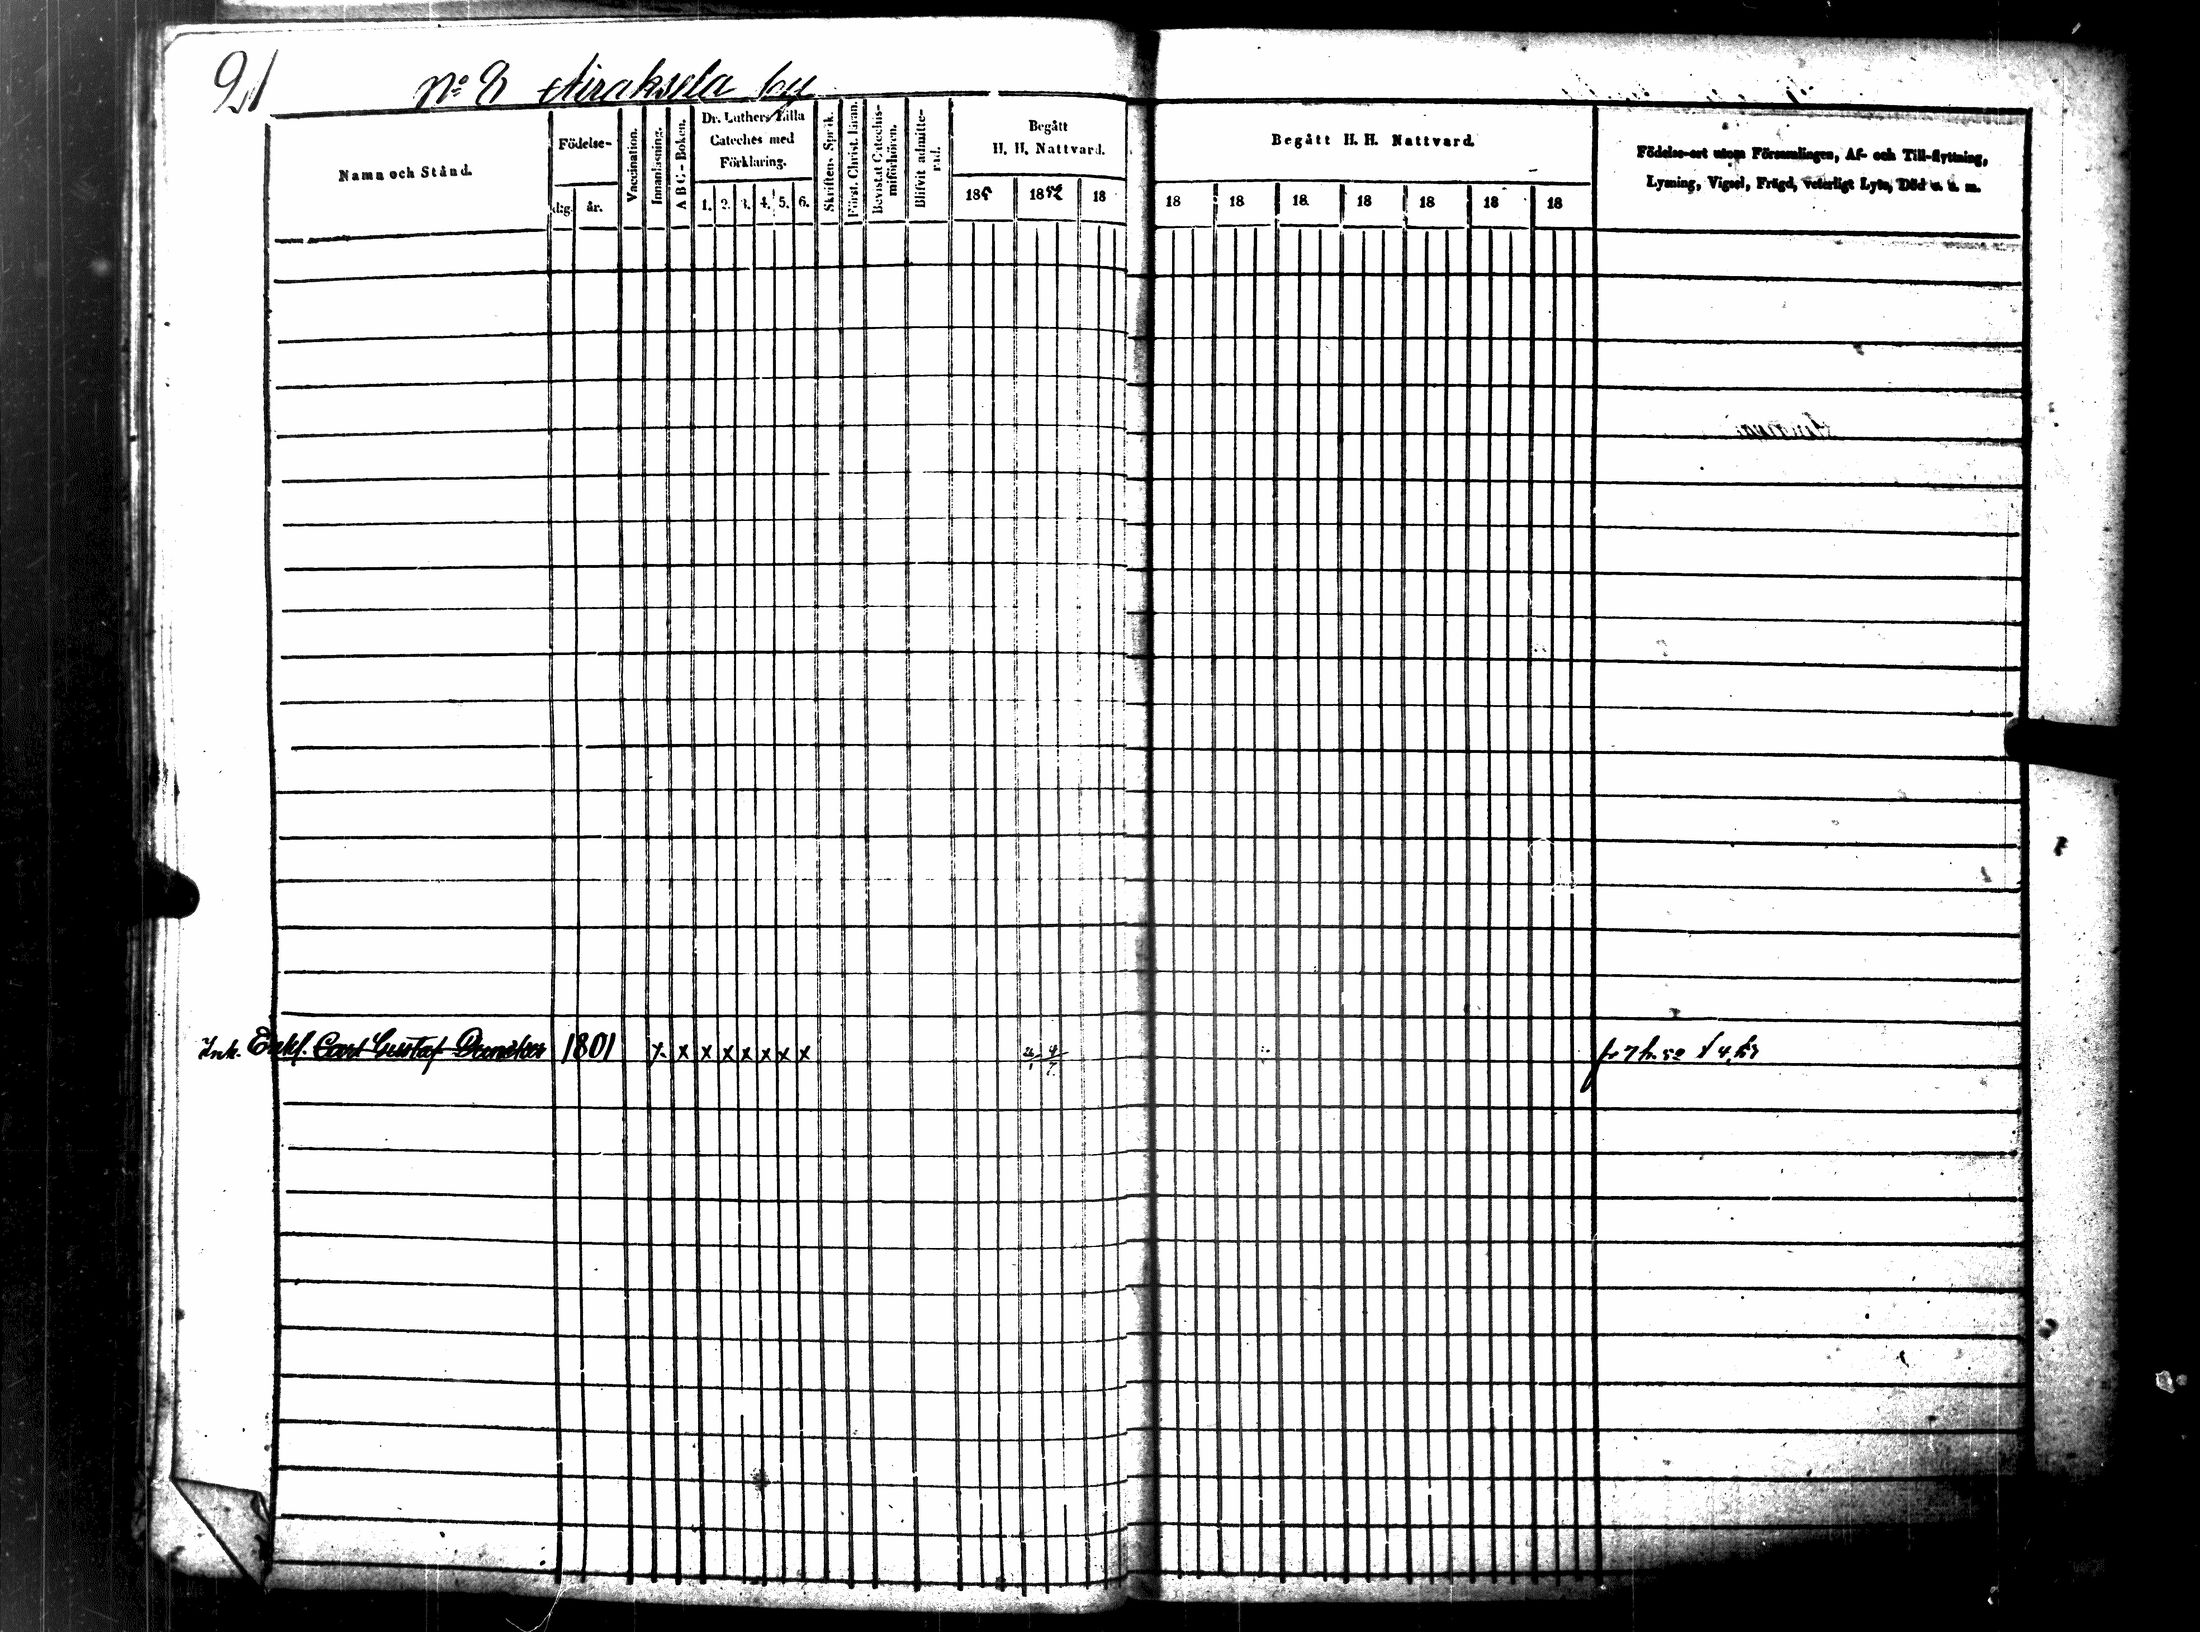 91
No 8 Airaksela by
Namn och Stånd.
Födelse-
dag.
år.
Vaccination.
Innanläsning.
A B C - Boken.
Dr. Luthers Lilla
Cateches med
Förklaring.
1. 2. 3. 4. 5. 6.
Skriftens Språk.
Först. Christ. Läran.
Bevistat Catechis-
miförhören.
Blifvit admitte-
rad.
Begått
H. H. Nattvard.
185 1852 18
Begått H. H. Nattvard.
18 18 18 18 18 18 18
Födelse-ort utom Församlingen, Af- och Till-flyttning,
Lysning, Vigsel, Frägd, veterligt Lyte, Död u. s. m.
Ink. Enkl. Carl Gustaf 1801 x x x x x x x x 4/7 fr 7 fr. 52